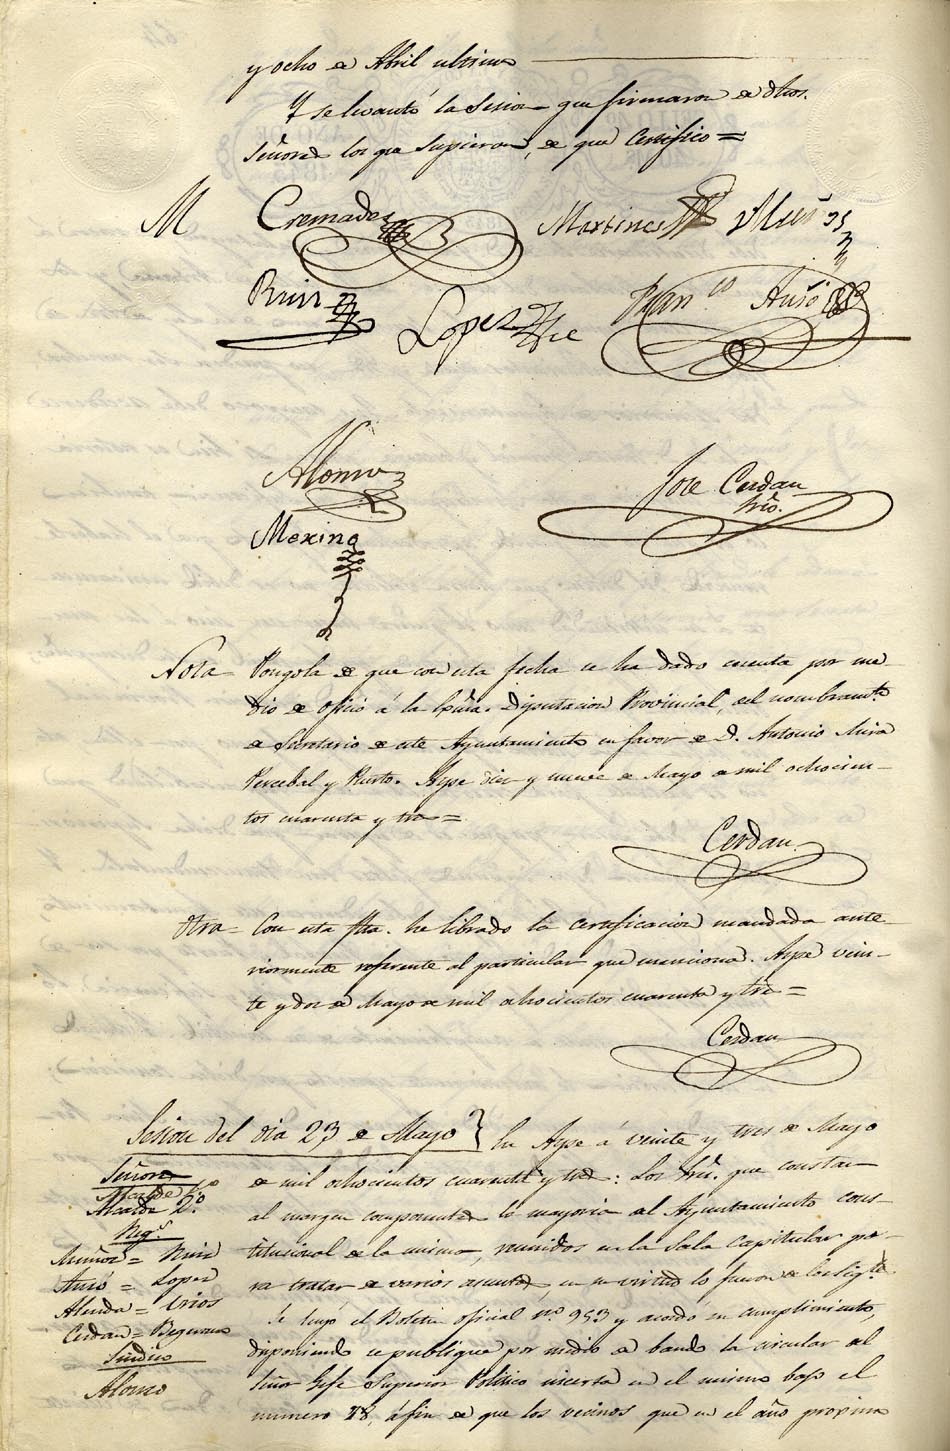 y ocho de Abril ultimo
Y se levantó la Sesion que firmaron de dhos.
Señores los que supieron, de que Certifico =
M Cremades Martinez Muñoz
Ruiz Lopez Fran.co Ausó
Alonso José Cerdan
Srio.
Merino
Nota = Pongola de que con esta fecha se ha dado cuenta por me-
dio de oficio á la Exma. Diputacion Provincial, del nombramto.
de Secretario de este Ayuntamiento en favor de D. Antonio Mira
Percebal y Puerto. Aspe diez y nueve de Mayo de mil ochocien-
tos cuarenta y tres =
Cerdan
Otra = Con esta fha. he librado la certificacion mandada ante-
riormente referente al particular que menciona. Aspe vein-
te y dos de Mayo de mil ochocientos cuarenta y tres =
Cerdan
Sesion del dia 23 de Mayo } En Aspe á veinte y tres de Mayo
Señores
Alcalde 1.o
Alcalde 2.o
Reg.s
Muñoz = Ruiz
Ausó = Lopez
Almda =
Cerdan =
Sindico
Alonso
de mil ochocientos cuarenta y tres: Los Sres. que constan
al margen componentes la mayoria del Ayuntamiento cons-
titucional de la misma, reunidos en la Sala Capitular pa-
ra tratar de varios asuntos, en su virtud lo fueron de los sigtes.
Se leyó el Boletin oficial n.o 953 y acordó su cumplimiento,
disponiendo se publique por medio de bando la circular del
Señor Gefe Superior Politico inserta en el mismo bajo el
numero 78, á fin de que los vecinos que en el año proximo